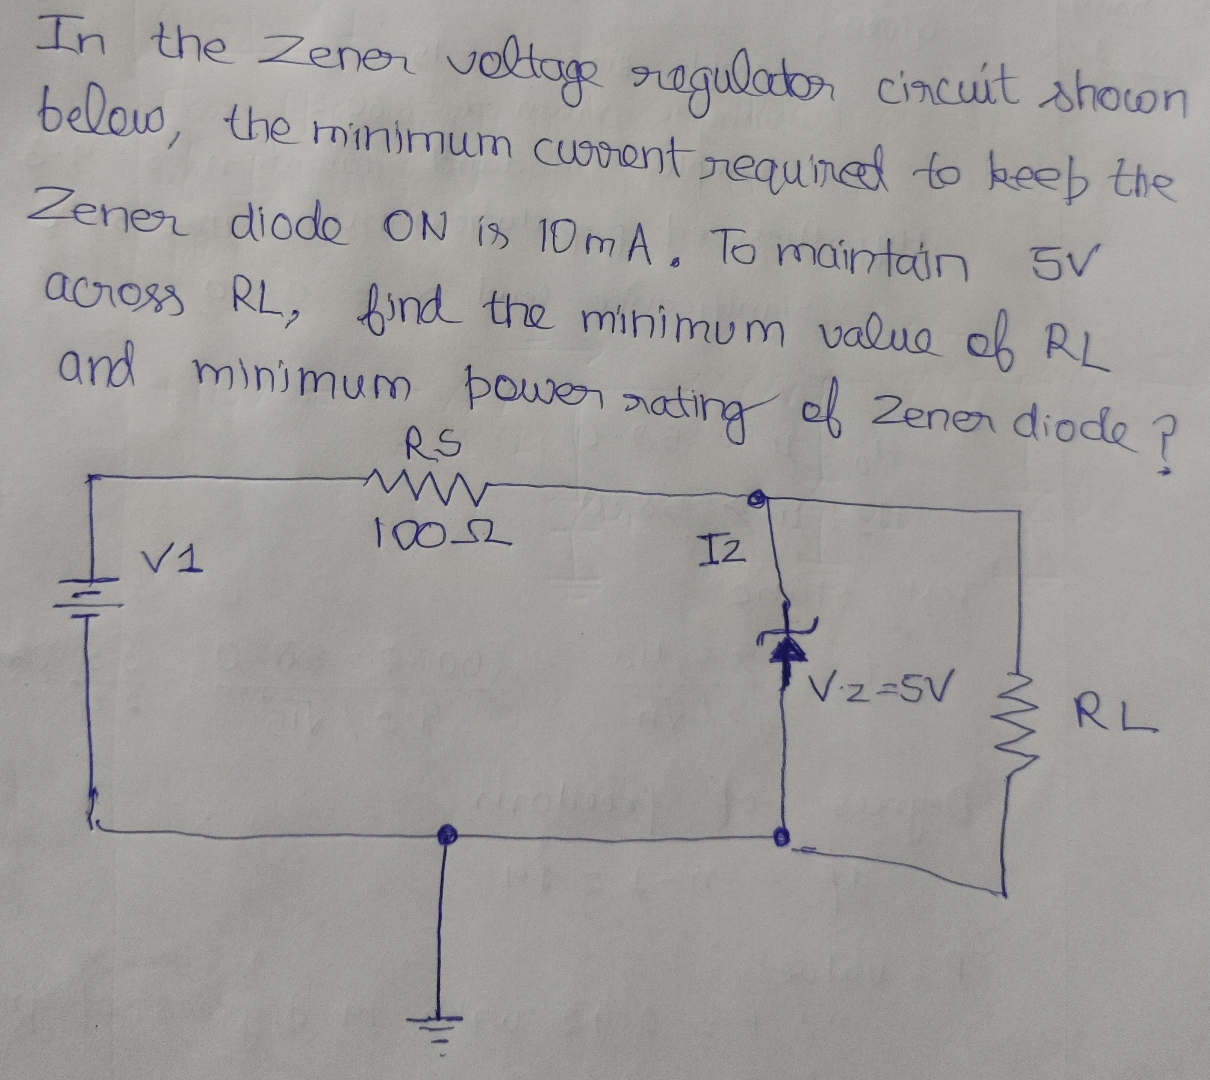 In the Zener voltage regulator circuit shown
below, the minimum current required to keep the
Zener diode ON is 10mA. To maintain 5V
across RL, find the minimum value of RL
and minimum power rating of Zener diode?
RS
100Ω
V1
IZ
V.z=5V
RL